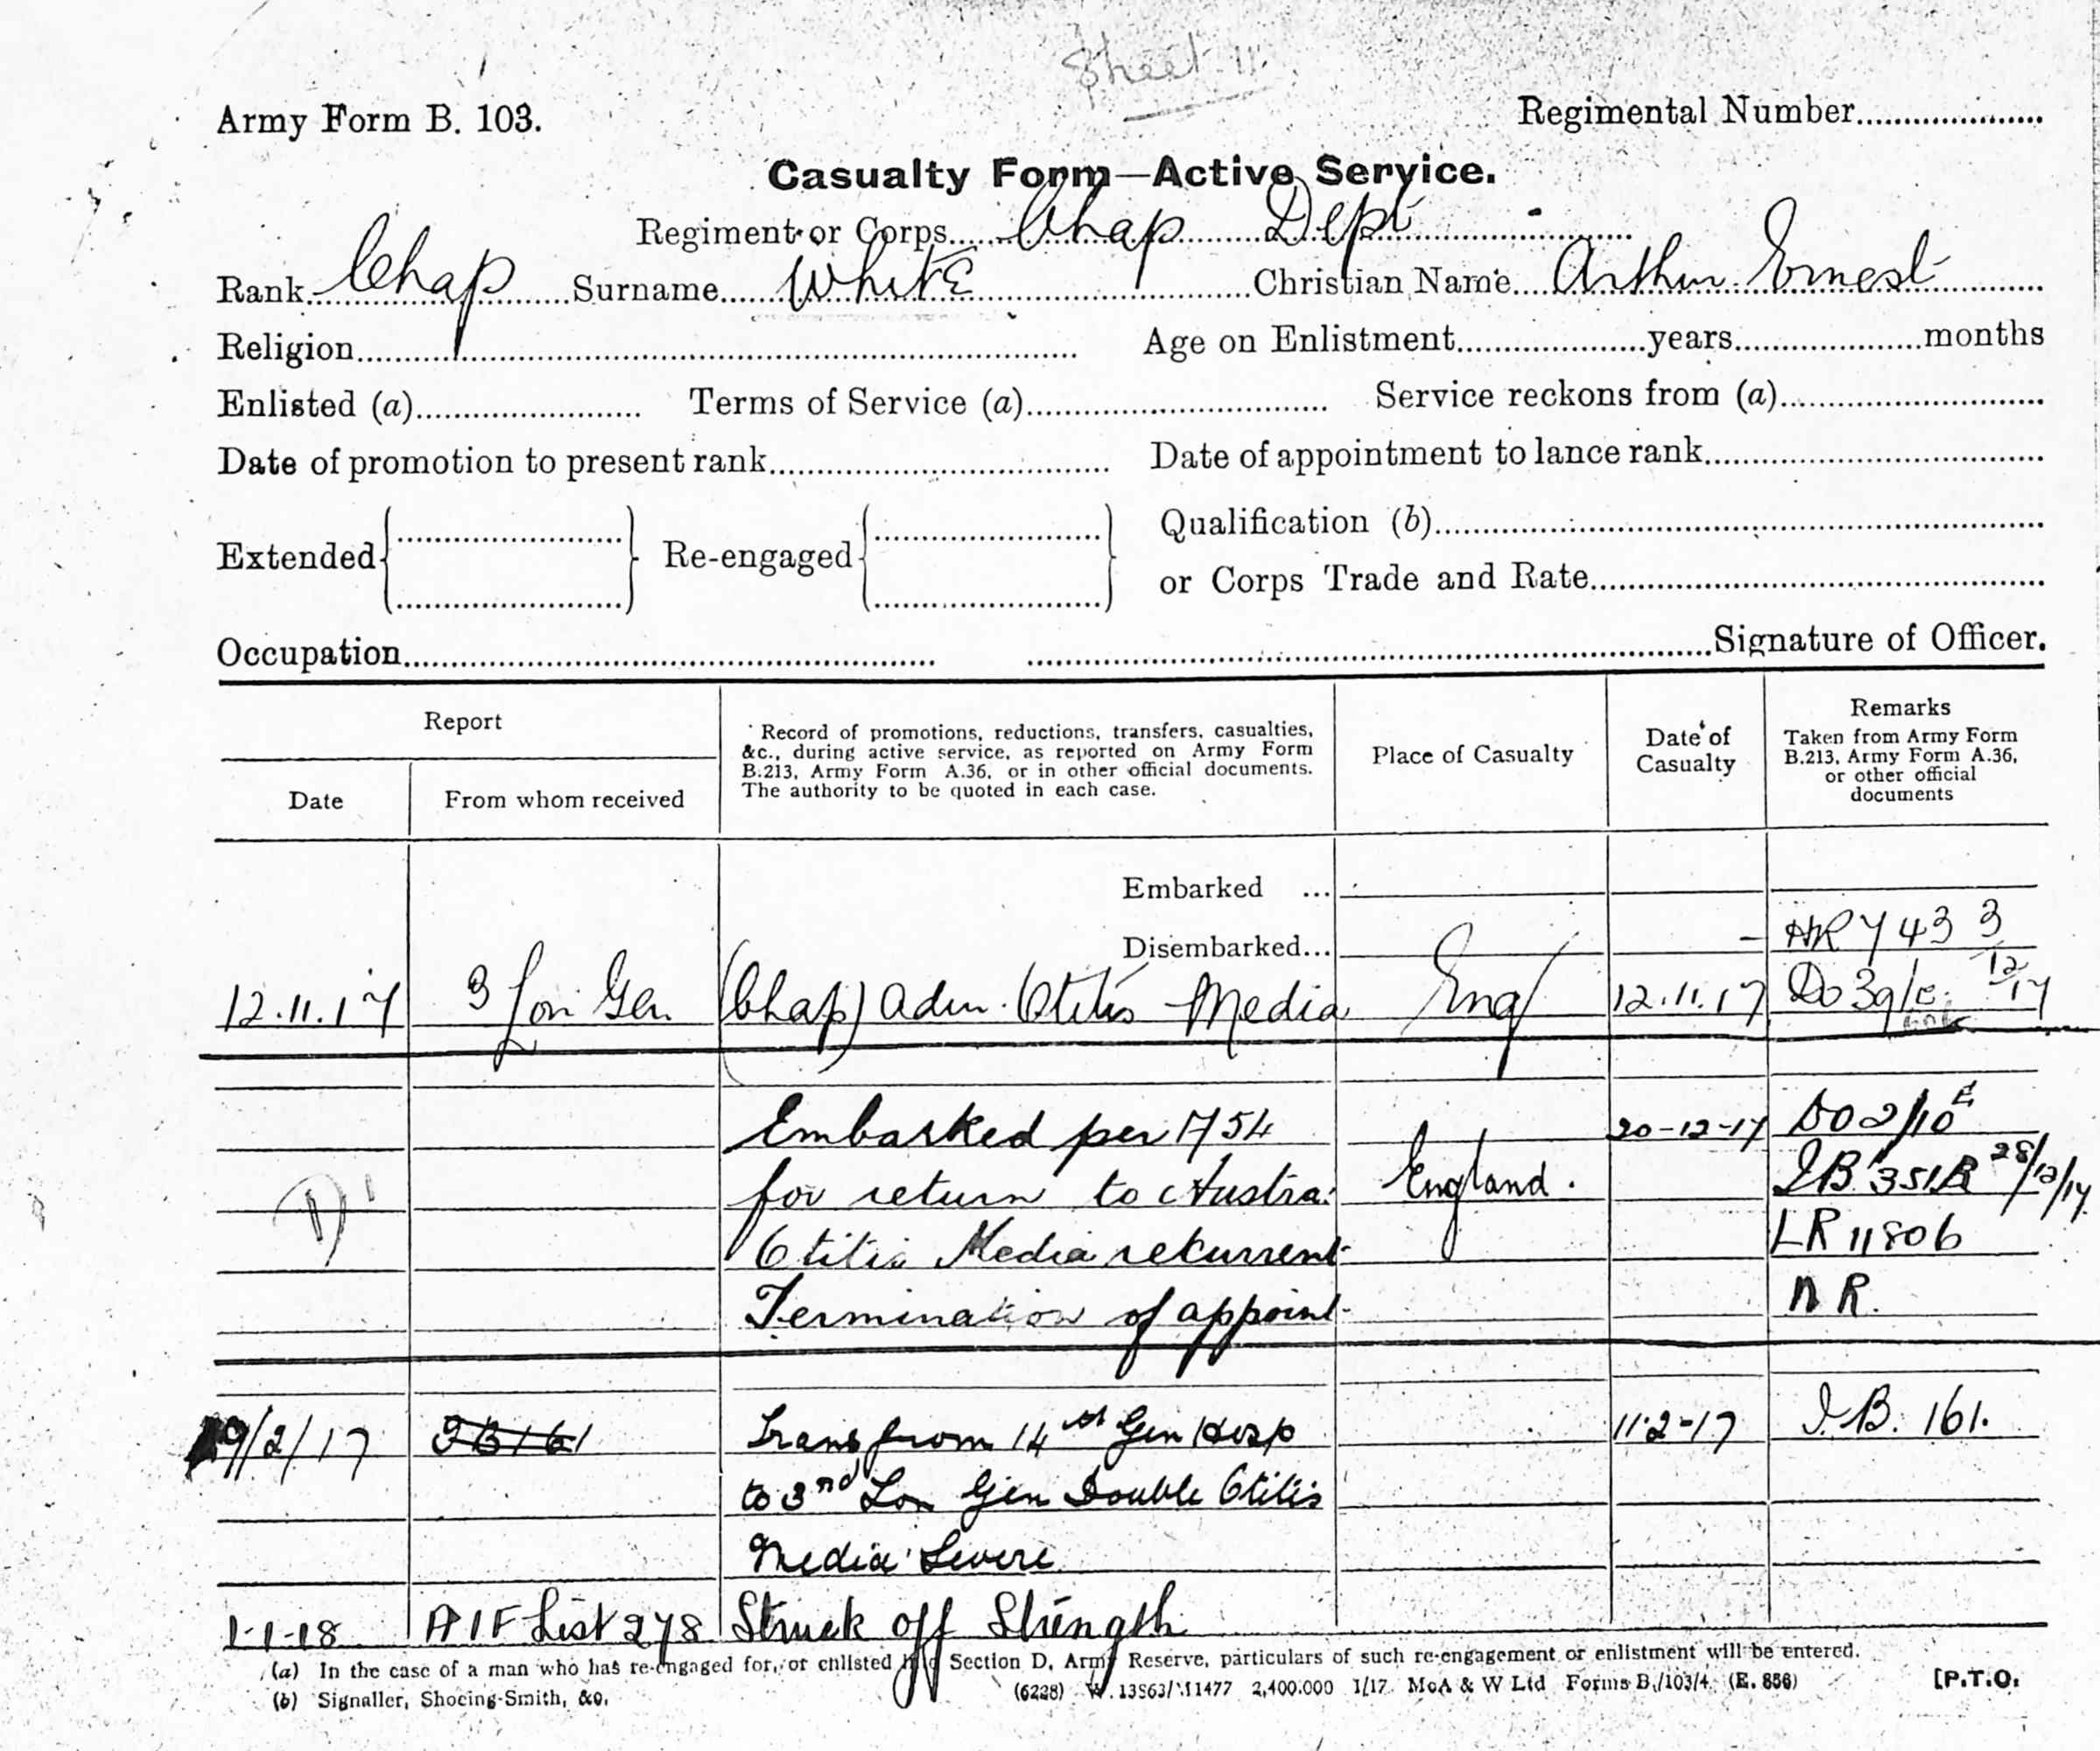 Sheet 11.
Army Form B. 103.
Regimental Number....................
Casualty Form—Active Service.
Regiment or Corps Chap Dept
Rank Chap Surname White Christian Name Arthur Ernest
Religion Age on Enlistment years months
Enlisted (a) Terms of Service (a) Service reckons from (a)
Date of promotion to present rank Date of appointment to lance rank
Extended Re-engaged Qualification (b)
or Corps Trade and Rate
Occupation Signature of Officer.
Report
Date
From whom received
Record of promotions, reductions, transfers, casualties,
&c., during active service, as reported on Army Form
B.213, Army Form A.36, or in other official documents.
The authority to be quoted in each case.
Place of Casualty
Date of
Casualty
Remarks
Taken from Army Form
B.213, Army Form A.36,
or other official
documents
Embarked ...
Disembarked... HR 7433
12.11.17 3 Lon Gen (Chap) adm. Otitis Media Eng 12.11.17 Do 39/e 12/17
Embarked per 1754 20-12-17 DO 2/10 E
for return to Austra: England. IB 351R 28/12/17
Otitis Media rekurrent LR 11806
Termination of appoint- N R.
9/2/17 IB 161 Trans from 14th Gen Hosp 11-2-17 I.B. 161.
to 3rd Lon Gen Double Otitis
Media Severe
1-1-18 AIF List 278 Struck off Strength
(a) In the case of a man who has re-engaged for, or enlisted into Section D, Army Reserve, particulars of such re-engagement or enlistment will be entered.
(b) Signaller, Shoeing-Smith, &c. (6228) W. 13863/M1477 2,400.000 1/17 McA & W Ltd Forms B./103/4. (E. 856) [P.T.O.